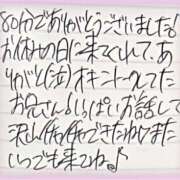 80分でありがとうございました!
お休みの日に来てくれて、あ
りがと(泣)オキニトークしてた
お兄さんといっぱいお話して
沢山仲仲できたねまた
いつでも来てね♪